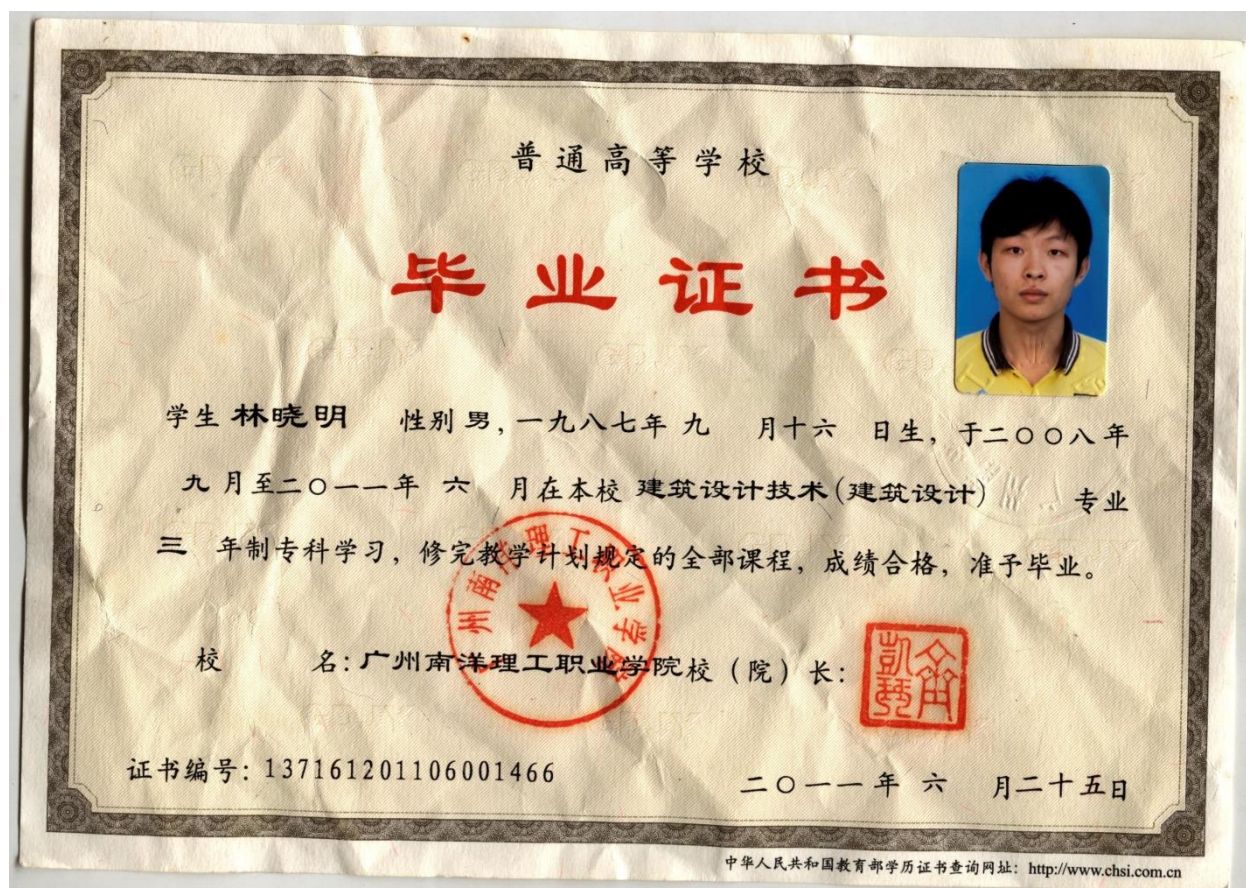 普通高等学校
毕业证书
学生 林晓明 性别 男, 一九八七年 九 月十六 日生, 于二〇〇八年
九 月至二〇一一年 六 月在本校 建筑设计技术(建筑设计) 专业
三 年制专科学习, 修完教学计划规定的全部课程, 成绩合格, 准予毕业。
广州南洋理工职业学院
校 名: 广州南洋理工职业学院 校 (院) 长:
证书编号: 137161201106001466
二〇一一年 六 月二十五日
中华人民共和国教育部学历证书查询网址: http://www.chsi.com.cn